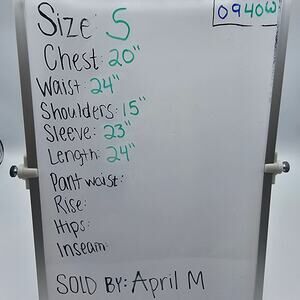 0940W
Size: S
Chest: 20"
Waist: 24"
Shoulders: 15"
Sleeve: 23"
Length: 24"
Pant waist:
Rise:
Hips:
Inseam:
SOLD BY: April M